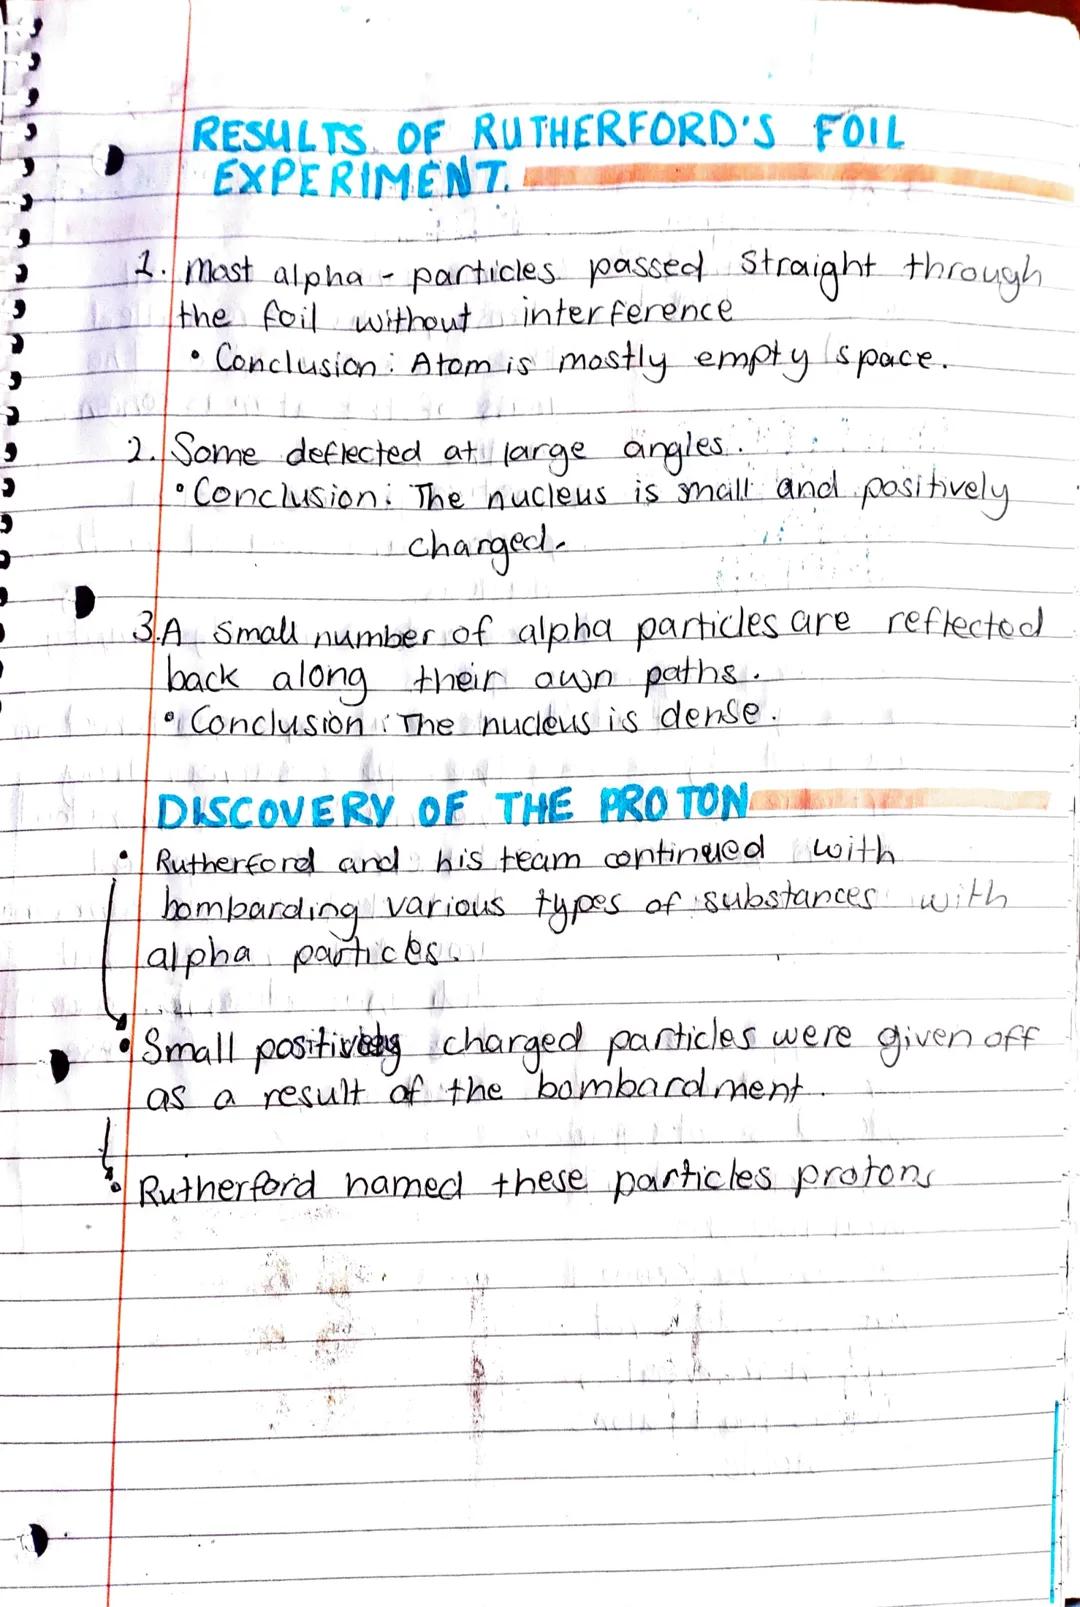 RESULTS OF RUTHERFORD'S FOIL
EXPERIMENT.
1. Most alpha - particles passed straight through
the foil without interference
• Conclusion : Atom is mostly empty space.
2. Some deflected at large angles.
• Conclusion : The nucleus is small and positively
charged.
3. A small number of alpha particles are reflected
back along their own paths.
• Conclusion : The nucleus is dense.
DISCOVERY OF THE PROTON
• Rutherford and his team continued with
bombarding various types of substances with
alpha particles.
• Small positively charged particles were given off
as a result of the bombardment.
• Rutherford named these particles protons